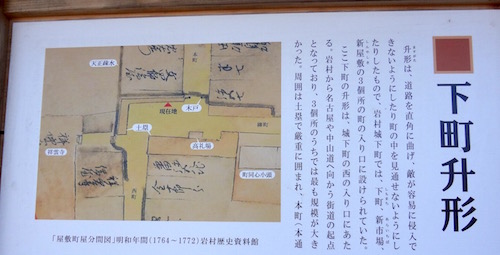 下町升形
升形は、道路を直角に曲げ、敵が容易に侵入で
きないようにしたり町の中を見通せないようにし
たりしたもので、岩村城下町では、下町、新市場、
新屋敷の3個所の町の入り口に設けられていた。
ここ下町の升形は、城下町の西の入り口にあた
る。岩村から名古屋や中山道へ向かう街道の起点
となっており、3個所のうちでは最も規模が大き
かった。周囲は土塁で厳重に囲まれ、本町(本通
大王疎水
本町
木戸
現在地
土塁
高札場
祥雲寺
西町
町同心小頭
「屋敷町屋分間図」明和年間(1764~1772)岩村歴史資料館